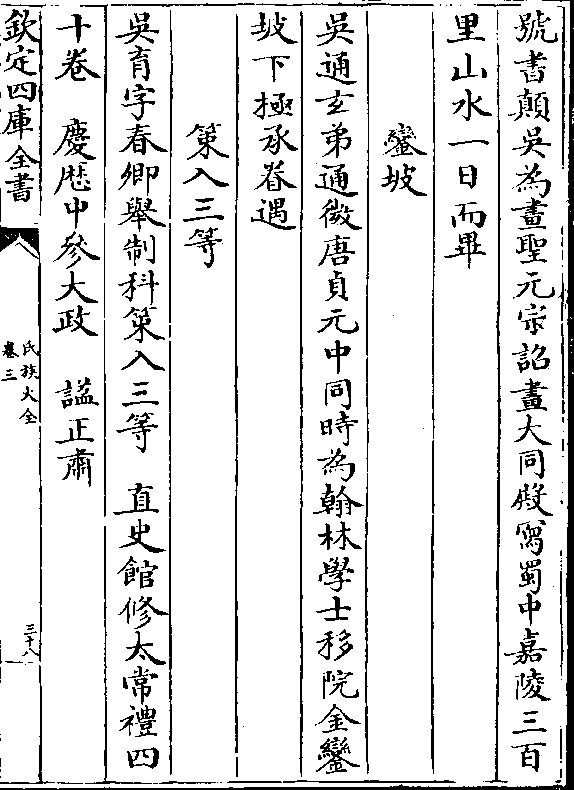 號書顛吳為畫聖元宗詔畫大同殿寫蜀中嘉陵三百
里山水一日而畢
鑾坡
吳通玄弟通微唐貞元中同時為翰林學士移院金鑾
坡下極承眷遇
策入三等
吳育字春卿舉制科策入三等　直史館修太常禮四
十卷　慶歴中參大政　諡正肅
欽定四庫全書
氏族大全
卷三
三十八